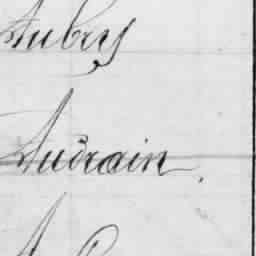 Aubry
Audrain.